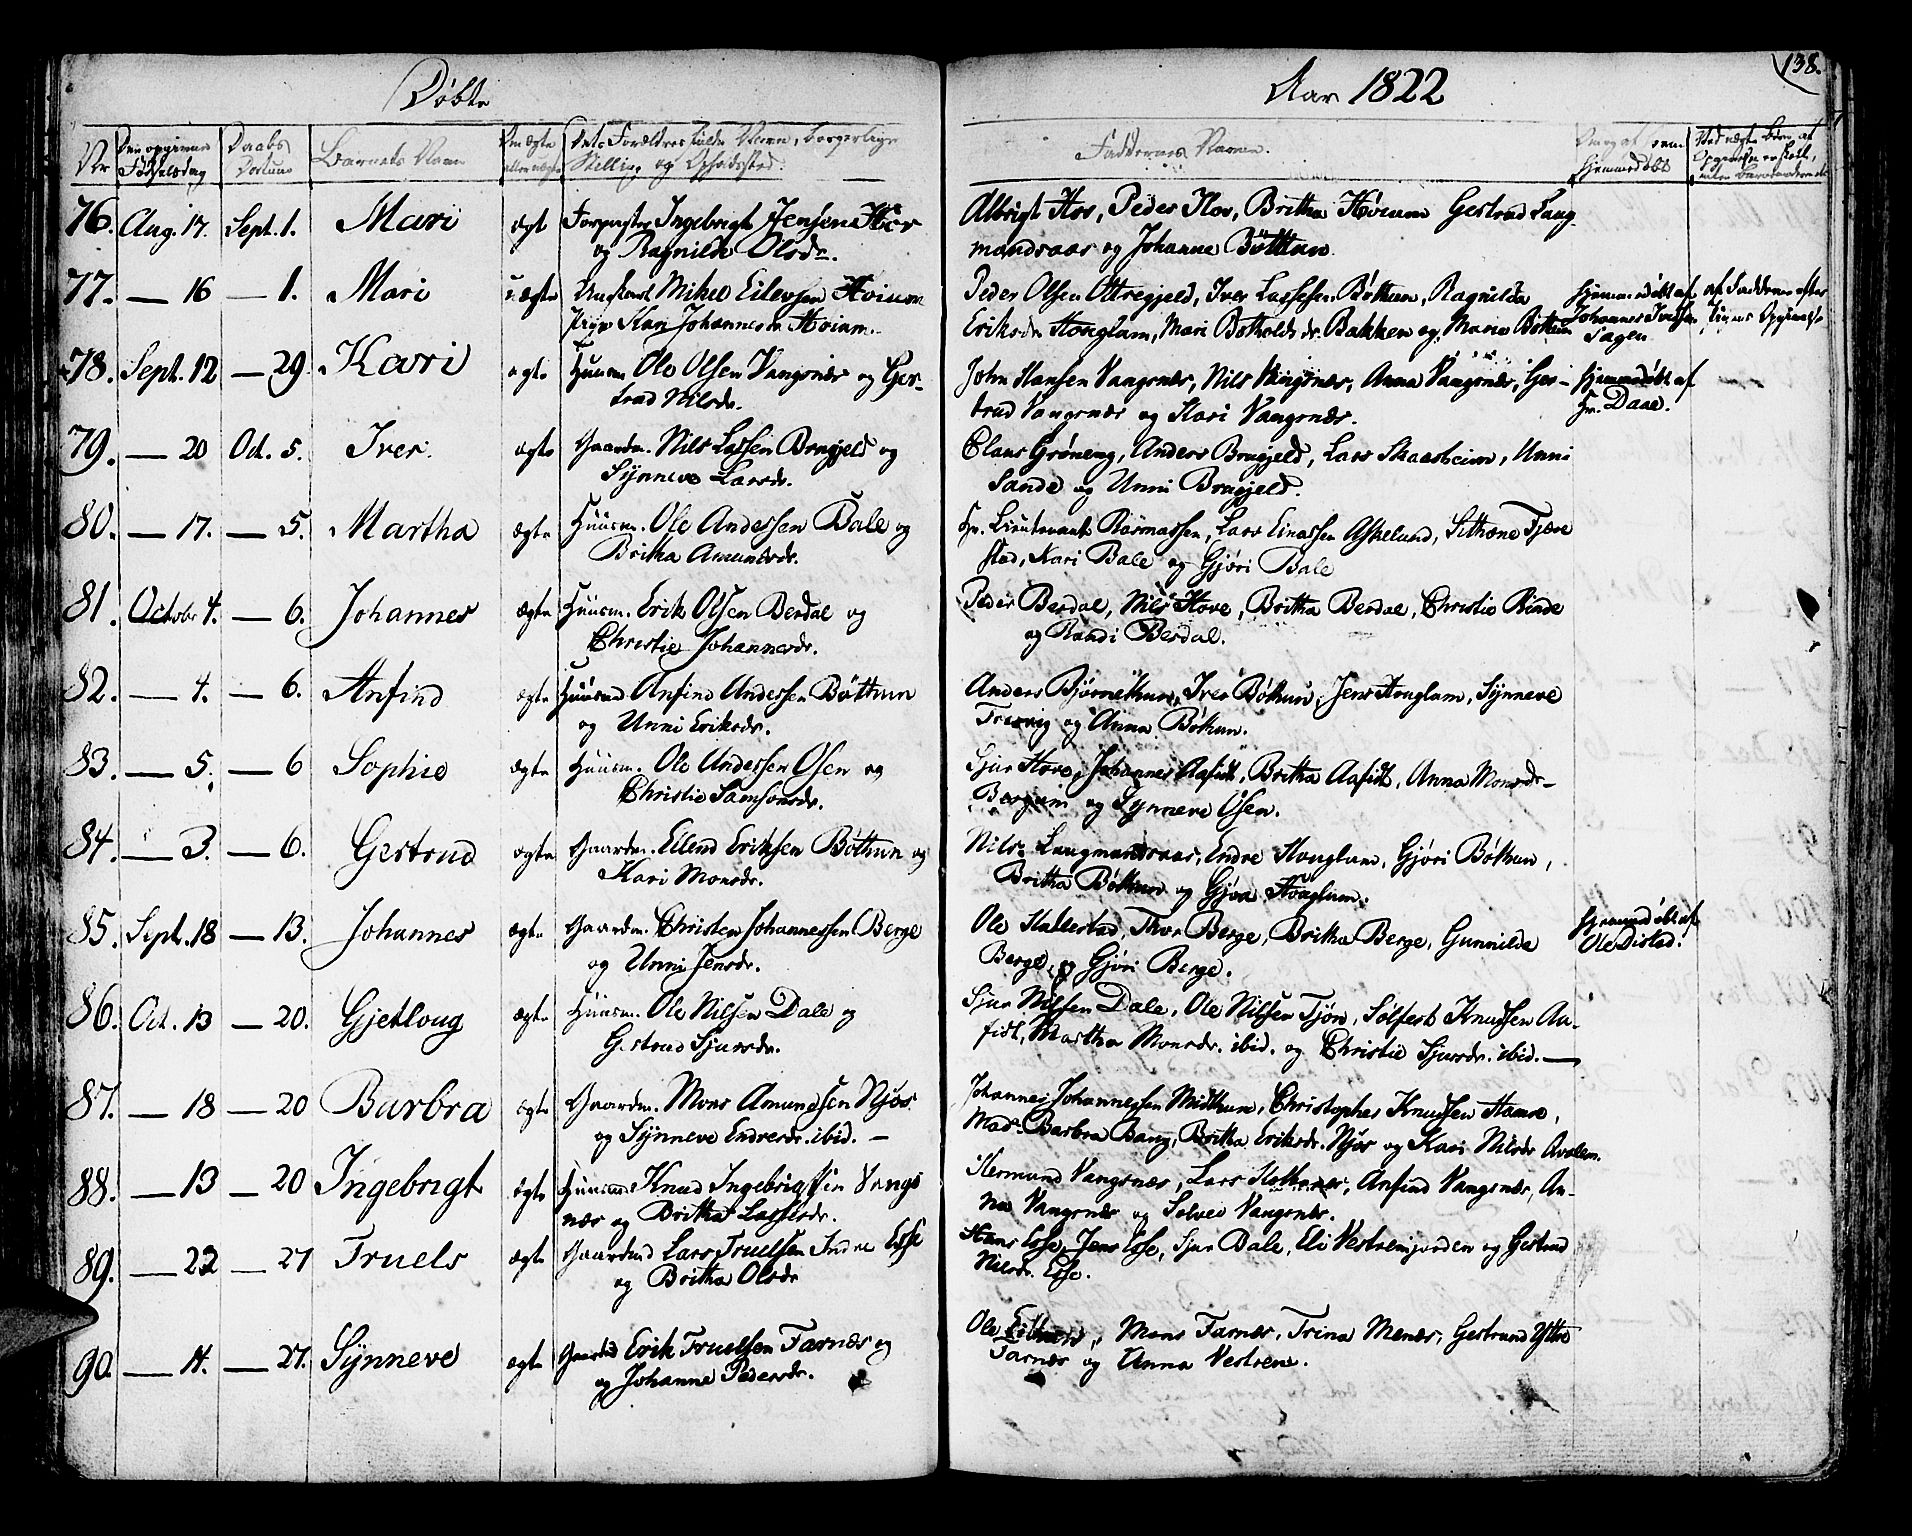 Døbte
Aar 1822
138.
Nr
Den opgivne Fødselsdag
Daabs Datum
Barnets Navn
Om ægte eller uægte
Dets Forældres fulde Navne, borgerlige Stilling og Opholdssted.
Faddernes Navne.
Om og af hvem hjemmedøbt
76. Aug. 17. Sept. 1. Mari ægt Ingebrigt Jensen Hov
og Ragnilde Olsdr.
Albrigt Hov, Peder Hov, Britha Høium Gertrud Laug
mandsaar og Johanne Bøthun
77. — 16 — 1. Mari uægte Ungkarl Mikel Eilevsen Høium
Pige Kari Johannesdr Høium.
Peder Olsen Ottregjeld, Iver Lassesen Bøthun, Ragnilda
Eriksdr Houglum, Mari Botholdsdr. Bakken og Maria Bøthun
hjemmedøbt af
Johannes Iversen
af Fadderne efter
78. Sept. 12 — 29. Kari ægte Huusm. Ole Olsen Vangsnæs og Ger-
trud Nilsdr.
John Hansen Vangsnæs, Nils Vangsnæs, Anna Vangsnæs, Ger-
trud Vangsnæs og Kari Vangsnæs.
hjemmedøbt af
Hr. Daae.
79. — 20 Oct. 5. Iver ægte Gaardm. Nils Lassen Bragjeld og
Synneve Larsdr.
Claus Grøneng, Anders Bragjeld, Lars Skaasheim, Unni
Sande og Unni Bragjeld.
80. — 17. — 5. Martha ægte Huusm. Ole Andersen Bale og
Britha Amundsdr.
Hr. Lieutenant Rasmussen, Lars Einassen Askelund, Sithæne Fjære
stad, Kari Bale og Gjøri Bale
81. Octobr 4. — 6. Johannes ægte Huusm. Erik Olsen Berdal og
Christie Johannesdr.
Peder Berdal, Nils Hove, Britha Berdal, Christie Rinde
og Randi Berdal.
82. — 4. — 6. Anfind ægte Huusmd. Anfind Andersen Bøthun
og Unni Eriksdr.
Anders Bjørnethun, Iver Bøthun, Jens Houglum, Synneve
og Anna Bøthun.
83. — 5. — 6 Sophie ægte Huusm. Ole Andersen Osen og
Christie Samsonsdr.
Sjur Hove, Johannes Aafidt, Britha Aafidt, Anna Monsdr-
Bergum og Synneve Osen.
84. — 3. — 6. Gertrud ægte Gaardm. Ellend Eriksen Bøthun og
Kari Monsdr.
Nils Laugmandsaar, Endre Houglum, Gjøri Bøthun,
Britha Bøthun og Gjøa Houglum.
85. Sept. 18 — 13. Johannes ægte Gaardm. Christen Johannessen Berge
og Unni Jensdr.
Ole Hallestad, Thor Berge, Britha Berge, Gunnilde
Berge, og Gjøri Berge.
hjemmedøbt af
Ole Distad.
86. Oct. 13 — 20. Gjetloug ægte Huusm. Ole Nilsen Dale og
Gertrud Sjursdr.
Sjur Nilsen Dale, Ole Nilsen Tjøn, Sølfest Knudsen Aa-
fidt, Martha Monsdr. ibid. og Christie Sjursdr. ibid. —
87. — 18 — 20 Barbra ægte Gaardm. Mons Amundsen Njøs
og Synneve Endresdr. ibid. —
Johannes Johannessen Midthun, Christopher Knudsen Hamre,
Mad. Barbra Bang, Britha Eriksdr. Njøs og Kari Nilsdr Avalem.
88. — 13 — 20 Ingebrigt ægte Huusmd Knud Ingebrigtsen Vangs
næs og Britha Lassesdr.
Hermund Vangsnæs, Lars, Anfind Vangsnæs, An-
na Vangsnæs og Solvei Vangsnæs.
89. — 22 — 27 Truels ægte Gaardmd Lars Truelsen Indre Esse
og Britha Olsdr
Hans Esse, Jens Esse, Sjur Dale, Eli Vestreimjorden og Gertrud
Nilsdr. Esse.
90. — 14. — 27. Synneve ægte Gaardmd Erik Truelsen Farnæs og
og Johanne Pedersdr.
Ole, Mons Farnæs, Trina Menæs, Gertrud Yttre
Farnæs og Anna Vestrem.